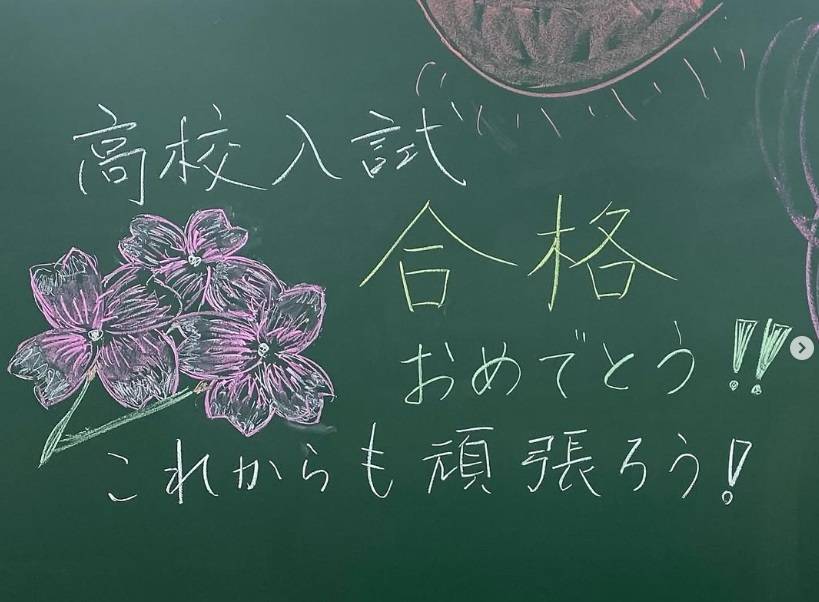 高校入試
合格
おめでとう!!
これからも頑張ろう!